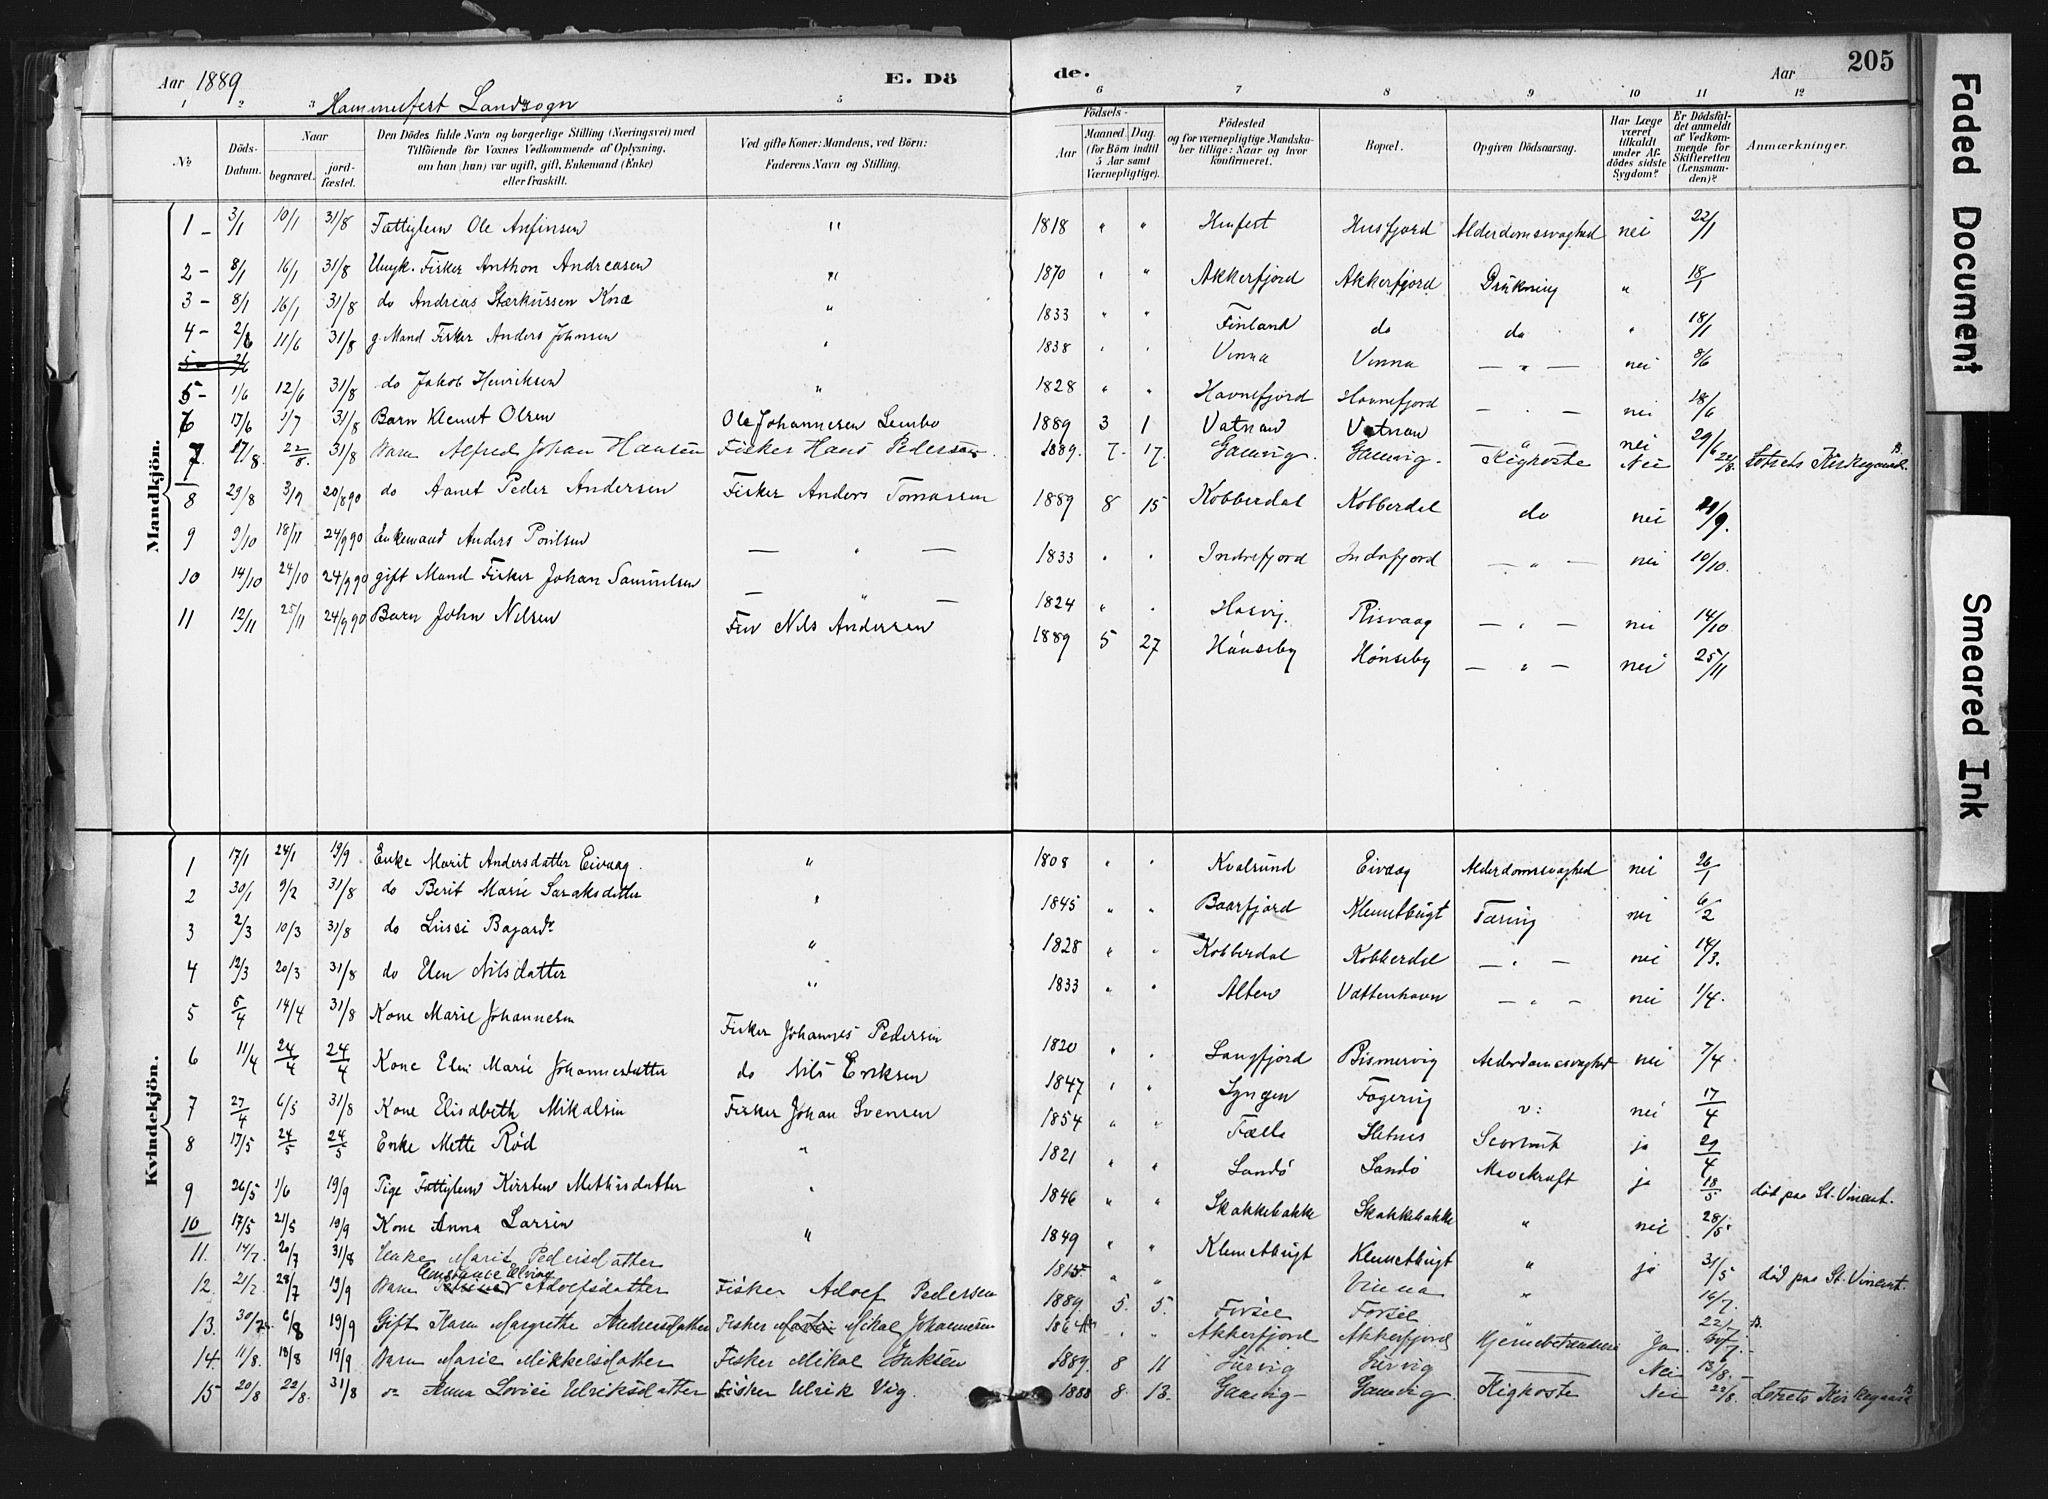 Aar 1889
E. Dö
de.
Aar
205
Hammerfest Landsogn
1 2 3 5 6 7 8 9 10 11 12
No.
Döds-Datum.
Naar
begravet.
jordfæstet.
Den Dödes fulde Navn og borgerlige Stilling (Næringsvei) med Tilföiende for Voxnes Vedkommende af Oplysning, om han (hun) var ugift, gift, Enkemand (Enke) eller fraskilt.
Ved gifte Koner: Mandens, ved Börn: Faderens Navn og Stilling.
Födsels-
Aar
Maaned Dag (for Börn indtil 5 Aar samt Værnepligtige).
Födested og for værnepligtige Mandskaber tillige: Naar og hvor konfirmeret.
Bopæl.
Opgiven Dödsaarsag.
Har Læge været tilkaldt under Afdödes sidste Sygdom?
Er Dödsfaldet anmeldt af Vedkommende for Skifteretten (Lensmanden)?
Anmærkninger.
Mandkjön.
1 - 3/1 10/1 31/8 Fattiglem Ole Anfinsen " 1818 " " Hmfest Husfjord Alderdomssvaghed nei 22/1
2 - 8/1 16/1 31/8 Ungk. Fisker Anthon Andreasen " 1870 " " Akkerfjord Akkerfjord Drukning " 18/1
3 - 8/1 16/1 31/8 do Andreas Stærkussen " 1833 " " Finland do do " 18/1
4 - 2/6 11/6 31/8 g. Mand Fisker Anders Johnsen " 1838 " " Vinna Vinna — " — nei 8/6
5 - 1/6 12/6 31/8 do Jakob Henriksen " 1828 " " Havnefjord Havnefjord — " — nei 18/6
6 13/6 1/7 31/8 Barn Klemet Olsen Ole Johannesen Lembo 1889 3 1 Vatnan Vatnan — " — nei 29/6
7 17/8 22/8 31/8 Barn Alfred Johan Hansen Fisker Hans Pedersen 1889 7 17 Gamvig Gamvig Kighoste Nei 22/8 Kirkegaard
8 29/8 3/9 20/8 90 do Aanet Peder Andersen Fisker Anders Tomassen 1889 8 15 Kobberdal Kobberdal do nei
9 9/10 18/11 24/9 90 Enkemand Anders Poulsen — " — 1833 " " Indrefjord Indrefjord — " — nei 10/10
10 14/10 24/10 24/9 90 gift Mand Fisker Johan Samuelsen — " — 1824 " " Hasvig Risvaag — " — nei 14/10
11 12/11 25/11 24/9 90 Barn John Nilsen Nils Andersen 1889 5 27 Hønseby Hønseby — " — nei 25/11
Kvindekjön.
1 17/1 24/1 19/9 Enke Marit Andersdatter Eivaag " 1808 " " Kvalsund Eivaag Alderdomssvaghed nei 26/1
2 30/1 9/2 31/8 do Berit Marie Saraksdatter " 1845 " " Baarfjord Klemetbugt Tæring nei 6/2
3 2/3 10/3 31/8 do Lussi " 1828 " " Kobberdal Kobberdal — " — nei 14/3
4 12/3 20/3 31/8 do Elen Nilsdatter " 1833 " " Alten — " — nei 1/4
5 5/4 14/4 31/8 Kone Marie Johannesen Fisker Johannes Pedersen 1820 " " Langfjord Bismervig Alderdomssvaghed nei 7/4
6 11/4 24/4 24/4 Kone Elen Marie Johannesdatter do Nils Eriksen 1847 " " Lyngen Fagervig nei 17/4
7 27/4 6/5 31/8 Kone Elisabeth Mikalsen Fisker Johan Svensen 1854 " " Sletnes ja 29/4
8 17/5 24/5 24/5 Enke Mette Rød " 1821 " " Sandø Sandø ja 18/5 død paa St. Vincent.
9 26/5 1/6 19/9 Pige Fattiglem Kirsten Mathisdatter " 1846 " " Skakkebakke Skakkebakke " nei 28/5
10 17/5 21/5 19/9 Kone Anna Larsen " 1849 " " Klemetbugt Klemetbugt " ja 31/5 død paa St. Vincent.
11. 14/7 20/7 31/8 Enke Marit Pedersdatter " " Vinna " 16/7
12. 21/7 28/7 19/9 Barn Constance Elvine Adolfsdatter Fisker Adolf Pedersen 1889 5. 5. Forsøl Forsøl 22/7
13. 30/7 6/8 19/9 Gift Karn Margrethe Andreasdatter Fisker Mikal Johannesen 1864 " " Akkerfjord Akkerfjord Ja
14 11/8 18/8 19/9 Barn Marie Mikkelsdatter Fisker Mikal Isaksen 1889. 8 11 Survig Survig Nei 13/8
15 20/8 22/8 31/8 Anna Lovise Ulriksdatter Fisker Ulrik Vig 1888 8. 13. Gamvig Gamvig Kighoste Nei 22/8 Kirkegaard
Faded Document
Smeared Ink